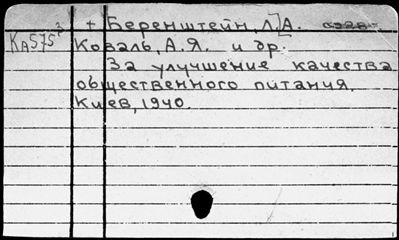 + Беренштейн, Л]А.
КА575³ Коваль, А.Я. и др.
За улучшение качества
общественного питания.
Киев, 1940.